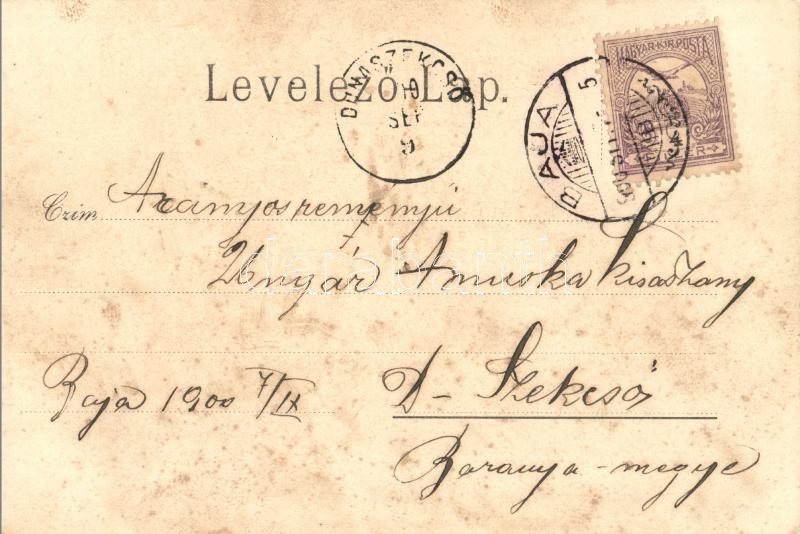 Levelező Lap.
DUNASZEKCSŐ
SEP
9
BAJA
MAGYAR KIR. POSTA
Czim Aranyosreményű
Ungár Annuska kisasszony
D- Szekcső
Baja 1900 7/IX
Baranya-megye